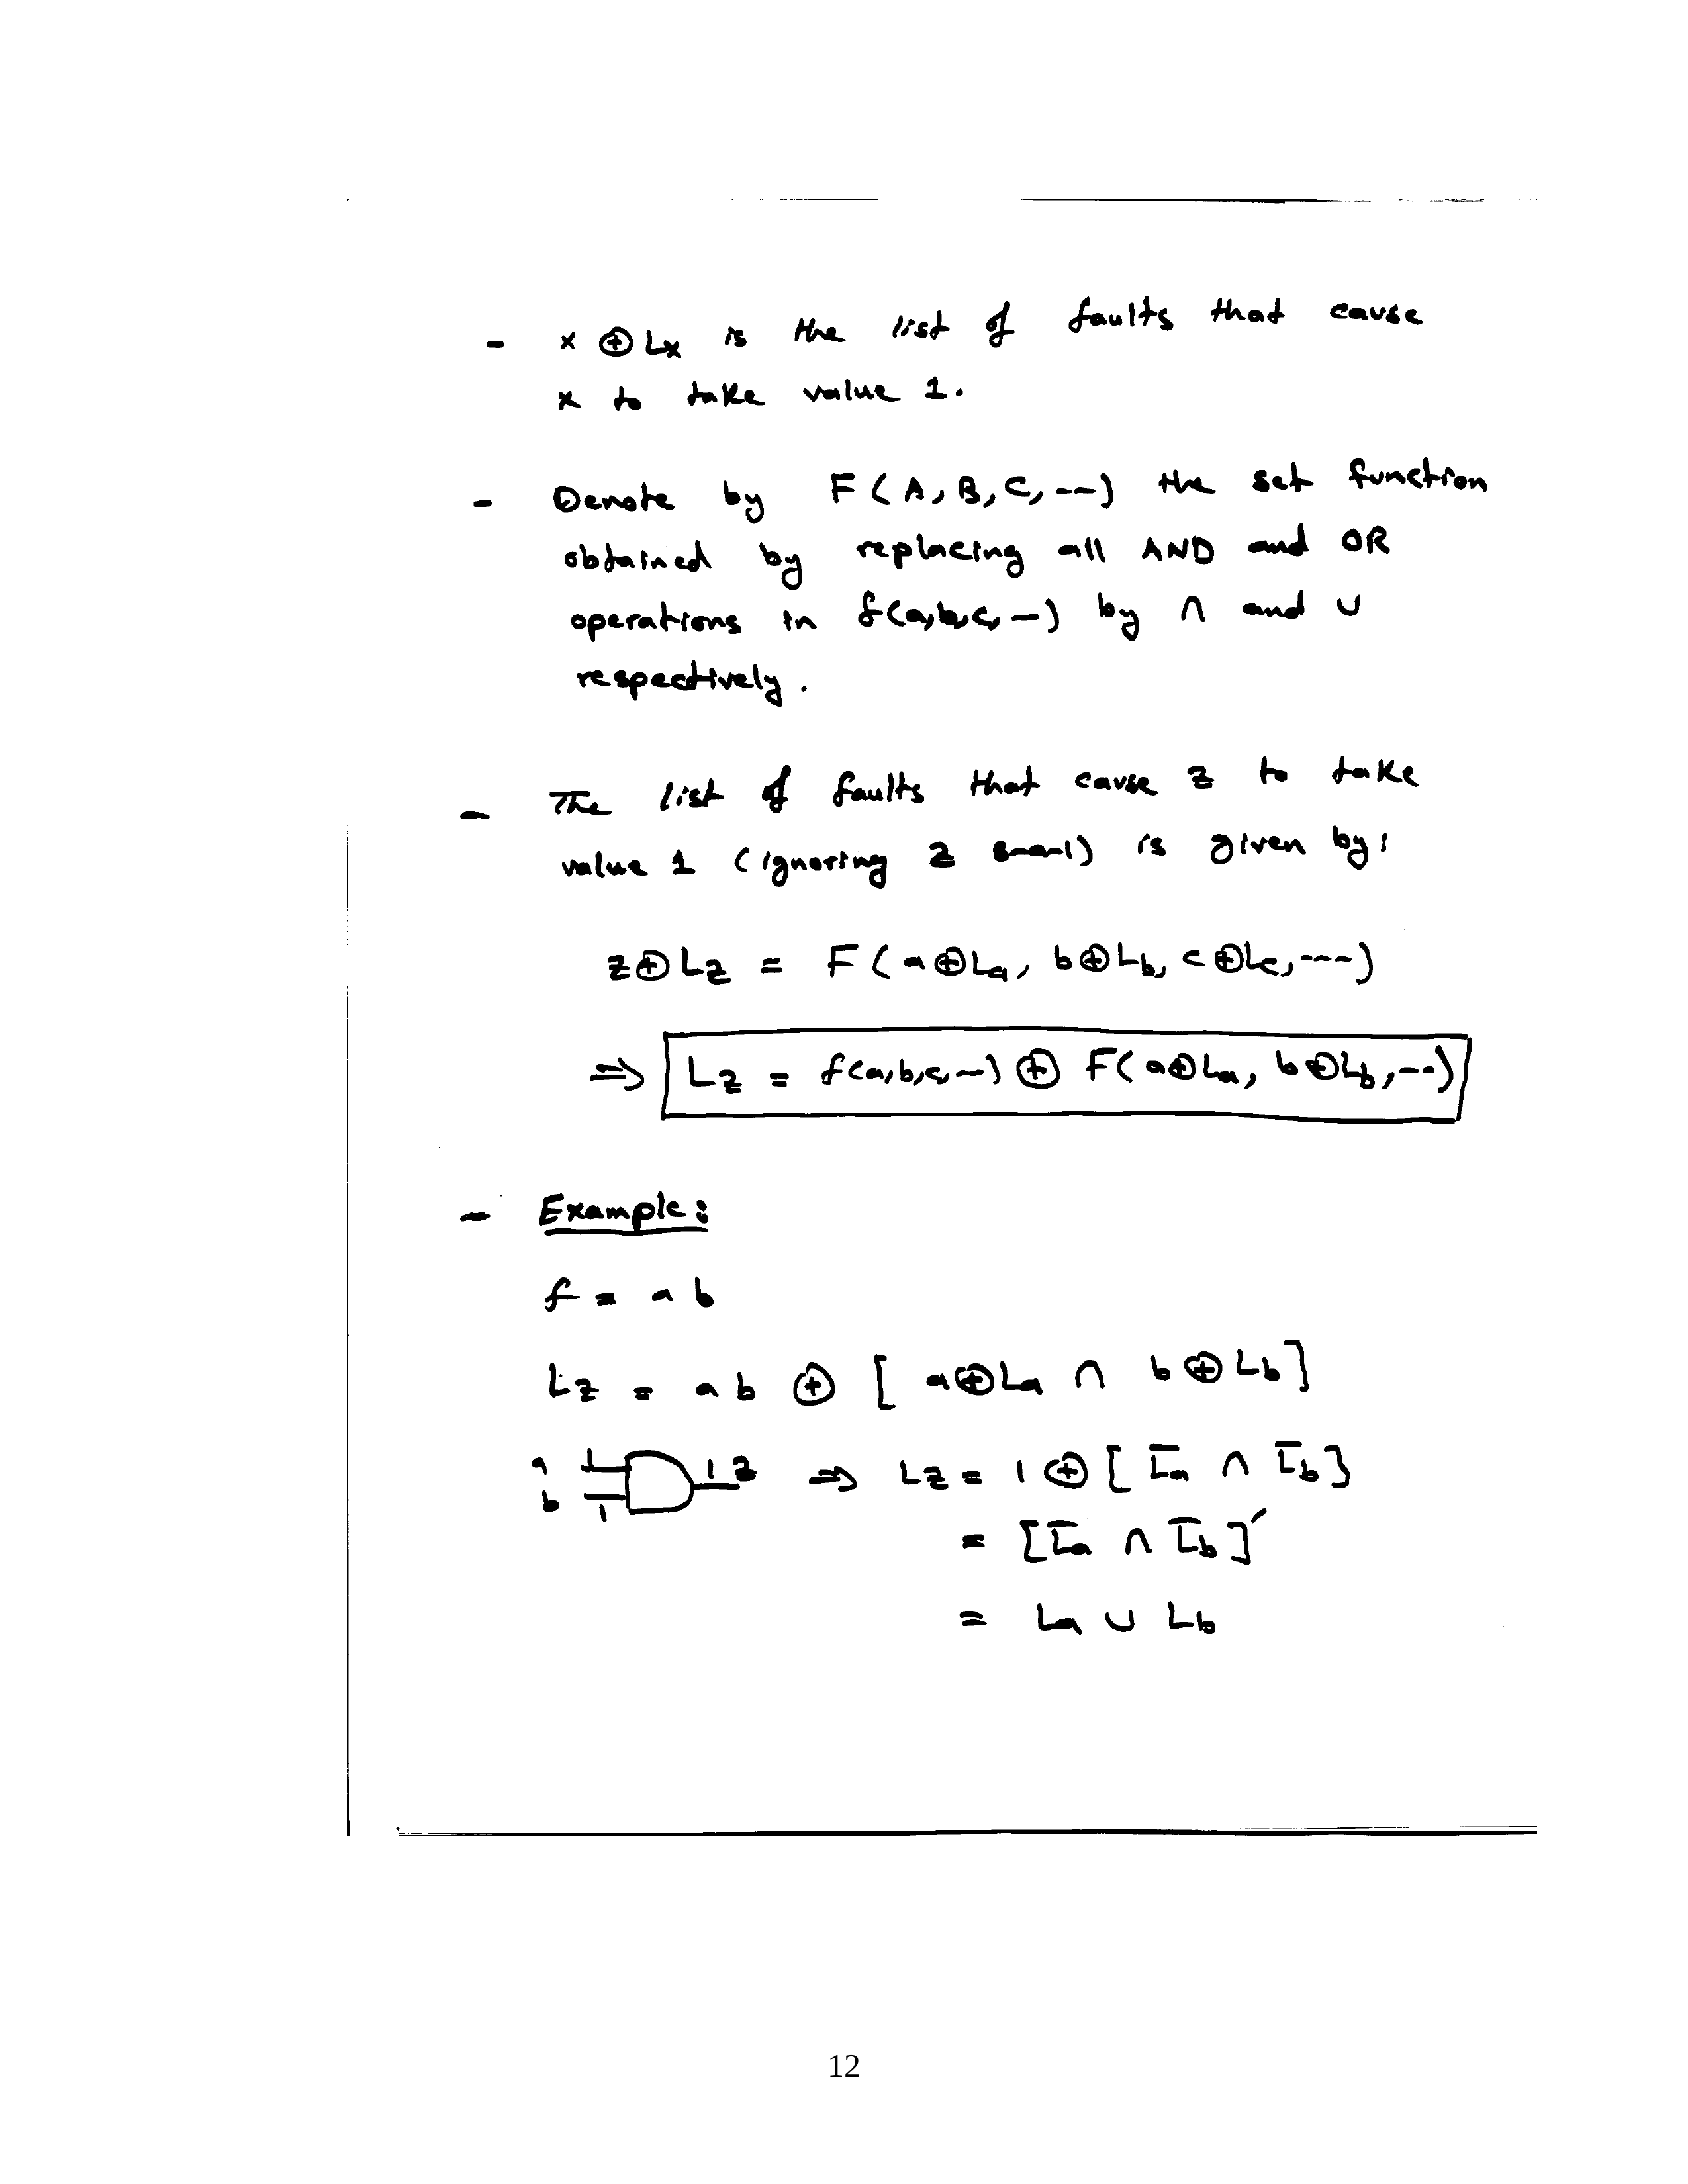 - x ⊕ Lx is the list of faults that cause
x to take value 1.
- Denote by F(A, B, C, ---) the set function
obtained by replacing all AND and OR
operations in f(a,b,c, --) by ∩ and ∪
respectively.
- The list of faults that cause z to take
value 1 (ignoring z s-a-1) is given by:
z⊕Lz = F(a⊕La, b⊕Lb, c⊕Lc, ----)
⇒ Lz = f(a,b,c, --) ⊕ F(a⊕La, b⊕Lb, ---)
- Example:
f = a b
Lz = a b ⊕ [ a⊕La ∩ b⊕Lb]
a 1 1 z ⇒ Lz = 1 ⊕ [L̅a ∩ L̅b]
b 1
= [L̅a ∩ L̅b]′
= La ∪ Lb
12